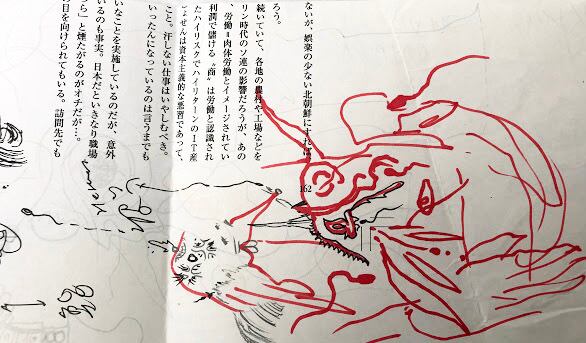 ないが、娯楽の少ない北朝鮮にすれば、
ろう。
続いていて、各地の農村や工場などを
リン時代のソ連の影響だろうが、あの
、労働＝肉体労働とイメージされてい
利潤で儲ける“商”は労働と認識され
たハイリスクでハイリターンのIT産
しょせんは資本主義的な悪習であって、
こと。汗しない仕事はいやしむべき。
いったんになっているのは言うまでも
いなことを実施しているのだが、意外
いるのも事実。日本だといきなり職場
ら」と煙たがるのがオチだが…。
目を向けられてもいる。訪問先でも
162